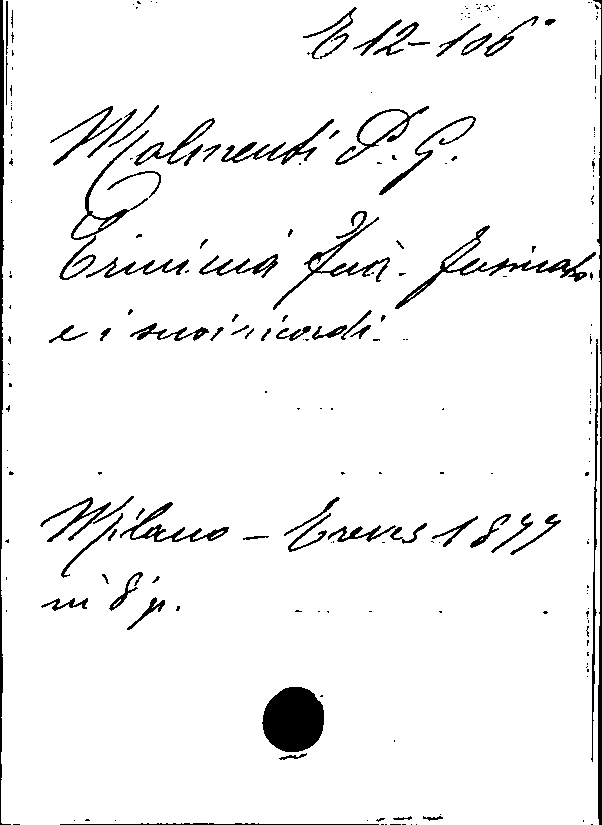 E 12-106
Molmenti P. G.
Erminia Fuà-Fusinato
e i suoi ricordi
Milano - Treves 1877
in 8° p.